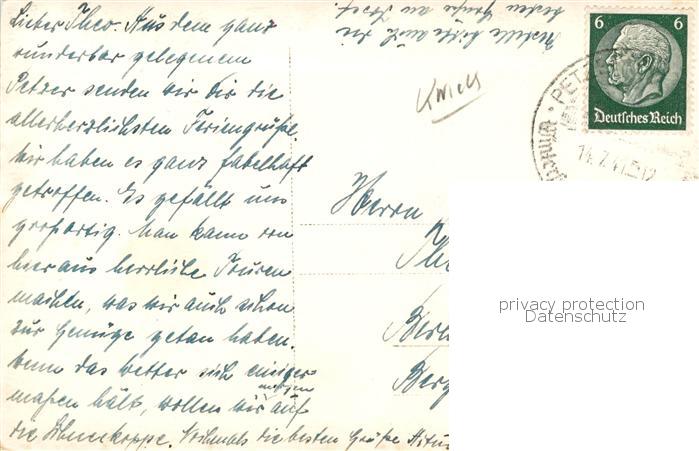 Lieber Theo. Aus dem ganz
wunderbar gelegenem
Petzer senden wir dir die
allerherzlichsten Feriengrüße.
Wir haben es ganz fabelhaft
getroffen. Es gefällt uns
großartig. Man kann von
hier aus herrliche Touren
machen, was wir auch schon
zur Genüge getan haben.
Wenn das Wetter sich einiger-
maßen hält, wollen wir morgen auf
die Schneekoppe. Nochmals die besten Grüße
Bestelle bitte auch die
besten Grüße an
6 6
Deutsches Reich
PETZER
14.7.41
Herrn
The
Berl
Berg
privacy protection
Datenschutz